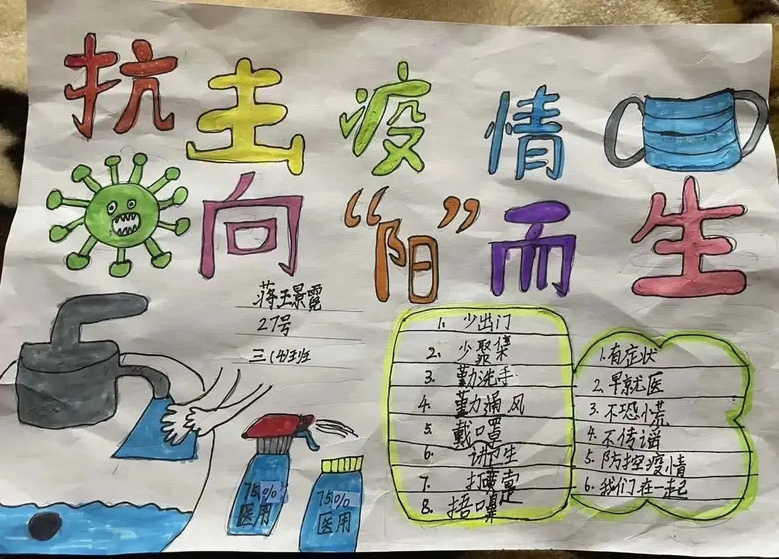 抗击疫情
向“阳”而生
27号
三(4)班
1. 少出门
2. 少聚集
3. 勤洗手
4. 勤通风
5 戴口罩
6 讲卫生
7. 打喷嚏
8. 捂口鼻
1.有症状
2.早就医
3.不恐慌
4.不传谣
5.防控疫情
6.我们在一起
75%
医用
75%
医用